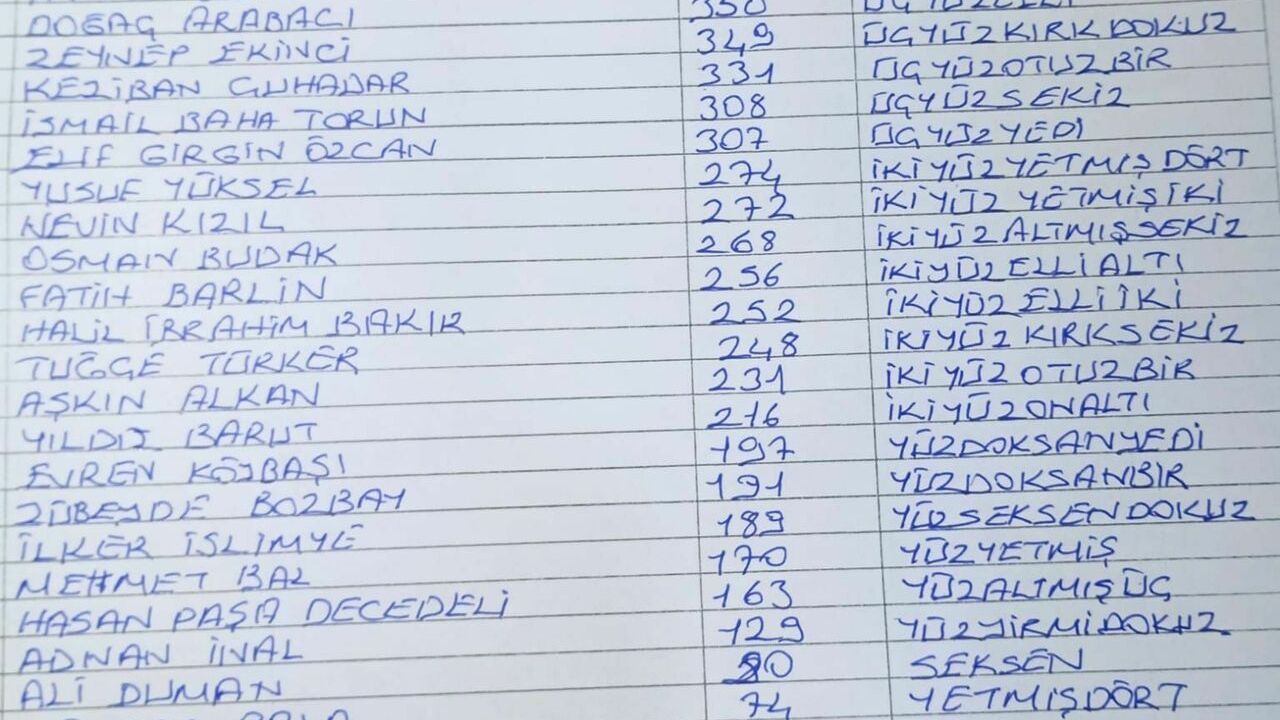 DOĞAÇ ARABACI 350 ÜÇYÜZELLİ
ZEYNEP EKİNCİ 349 ÜÇYÜZKIRKDOKUZ
KEZİBAN GUHADAR 331 ÜÇYÜZOTUZBİR
İSMAİL BAHA TORUN 308 ÜÇYÜZSEKİZ
ELİF GİRGİN ÖZCAN 307 ÜÇYÜZYEDİ
YUSUF YÜKSEL 274 İKİYÜZYETMİŞDÖRT
NEVİN KIZIL 272 İKİYÜZ YETMİŞİKİ
OSMAN BUDAK 268 İKİYÜZALTMIŞSEKİZ
FATİH BARLİN 256 İKİYÜZELLİALTI
HALİL İBRAHİM BAKIR 252 İKİYÜZELLİİKİ
TUĞÇE TÜRKER 248 İKİYÜZKIRKSEKİZ
AŞKIN ALKAN 231 İKİYÜZOTUZBİR
YILDIZ BARUT 216 İKİYÜZONALTI
EVREN KÖYBAŞI 197 YÜZDOKSANYEDİ
ZÜBEYDE BOZBAY 191 YÜZDOKSANBİR
İLKER İSLİMYE 189 YÜZSEKSENDOKUZ
MEHMET BAL 170 YÜZYETMİŞ
HASAN PAŞA DECEDELİ 163 YÜZALTMIŞÜÇ
ADNAN İNAL 129 YÜZYİRMİDOKUZ
ALİ DUMAN 80 SEKSEN
74 YETMİŞDÖRT